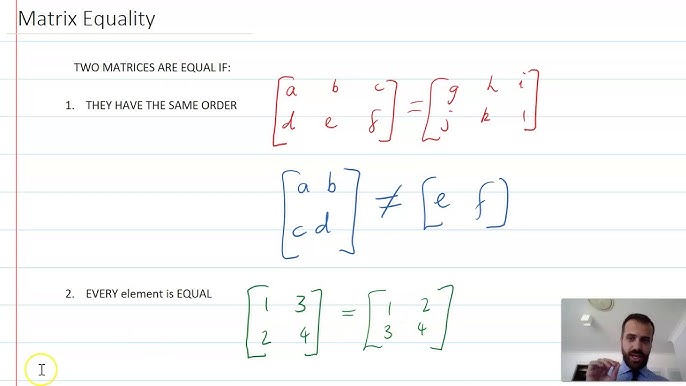 Matrix Equality
TWO MATRICES ARE EQUAL IF:
1. THEY HAVE THE SAME ORDER
[a b c
d e f] = [g h i
j k l]
[a b
c d] ≠ [e f]
2. EVERY element is EQUAL
[1 3
2 4] = [1 2
3 4]